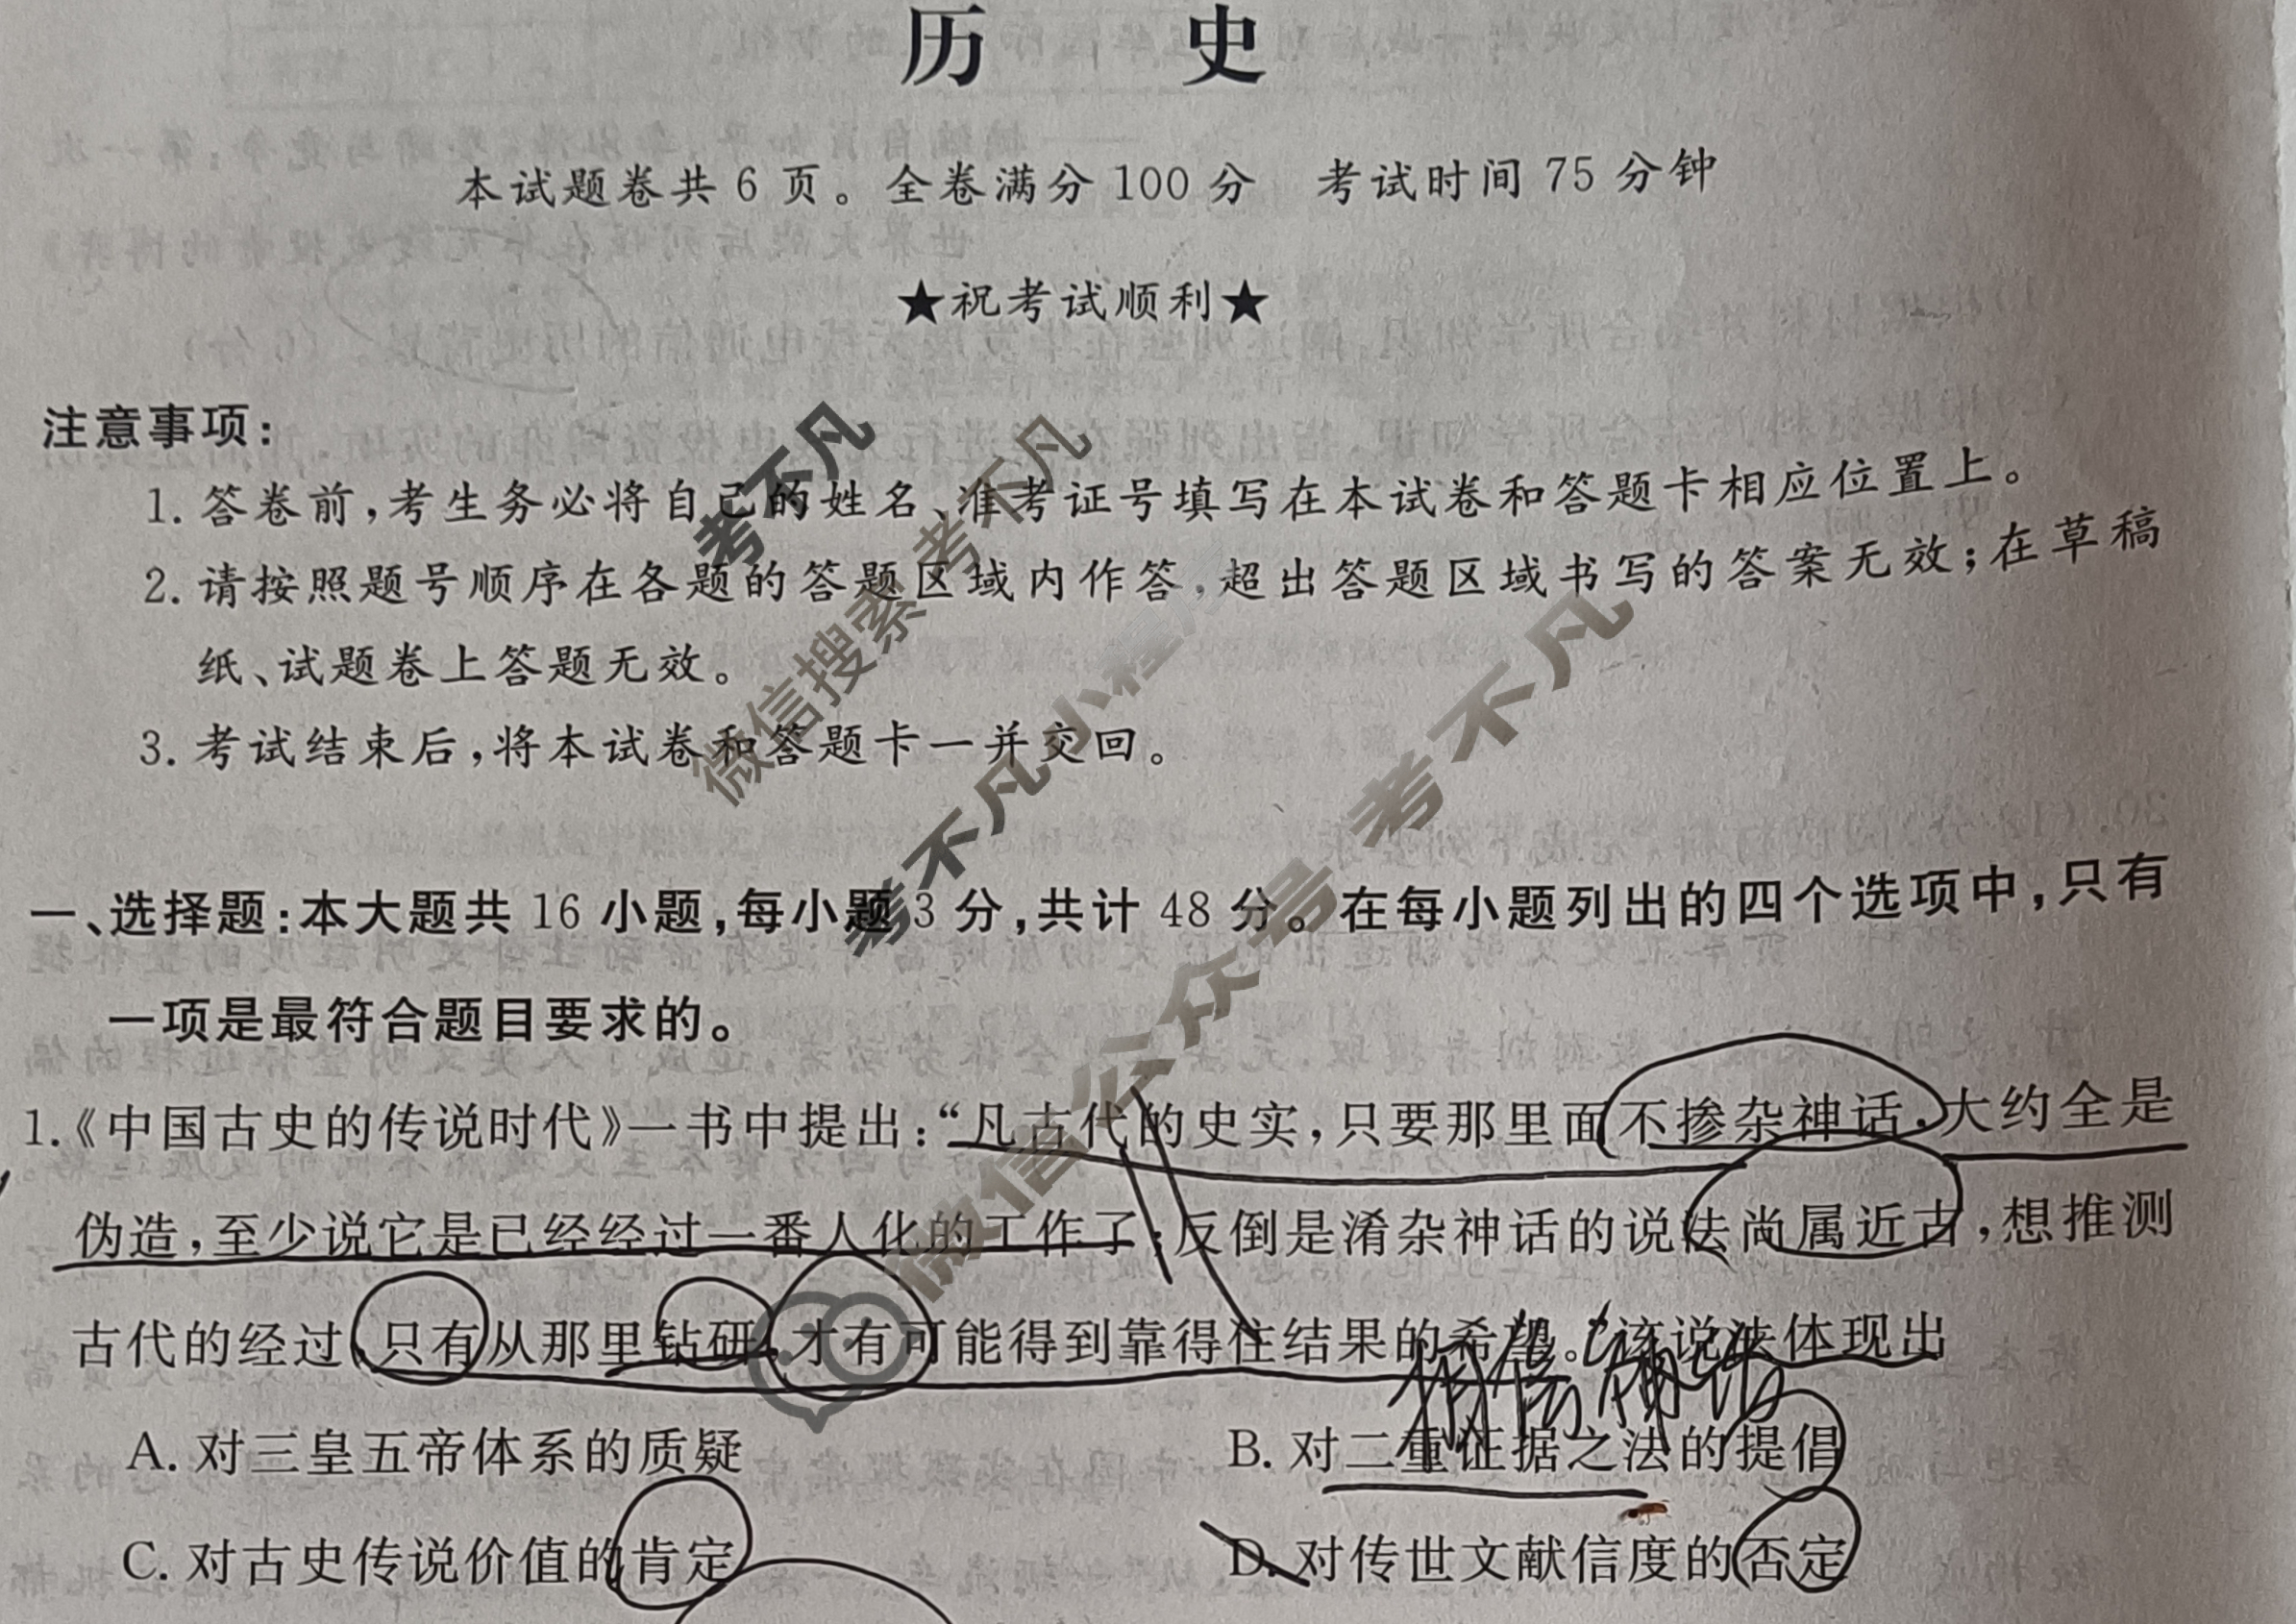 历 史
本试题卷共 6 页。全卷满分 100 分 考试时间 75 分钟
★祝考试顺利★
注意事项:
1. 答卷前,考生务必将自己的姓名、准考证号填写在本试卷和答题卡相应位置上。
2. 请按照题号顺序在各题的答题区域内作答,超出答题区域书写的答案无效;在草稿
纸、试题卷上答题无效。
3. 考试结束后,将本试卷和答题卡一并交回。
一、选择题:本大题共 16 小题,每小题 3 分,共计 48 分。在每小题列出的四个选项中,只有
一项是最符合题目要求的。
1.《中国古史的传说时代》一书中提出:“凡古代的史实,只要那里面不掺杂神话,大约全是
伪造,至少说它是已经经过一番人化的工作了;反倒是淆杂神话的说法尚属近古,想推测
古代的经过,只有从那里钻研,才有可能得到靠得住结果的希望。”该说法体现出
相信神话
A. 对三皇五帝体系的质疑
B. 对二重证据之法的提倡
C. 对古史传说价值的肯定
D. 对传世文献信度的否定
考不凡
微信搜索 考不凡
考不凡 小程序
微信公众号 考不凡